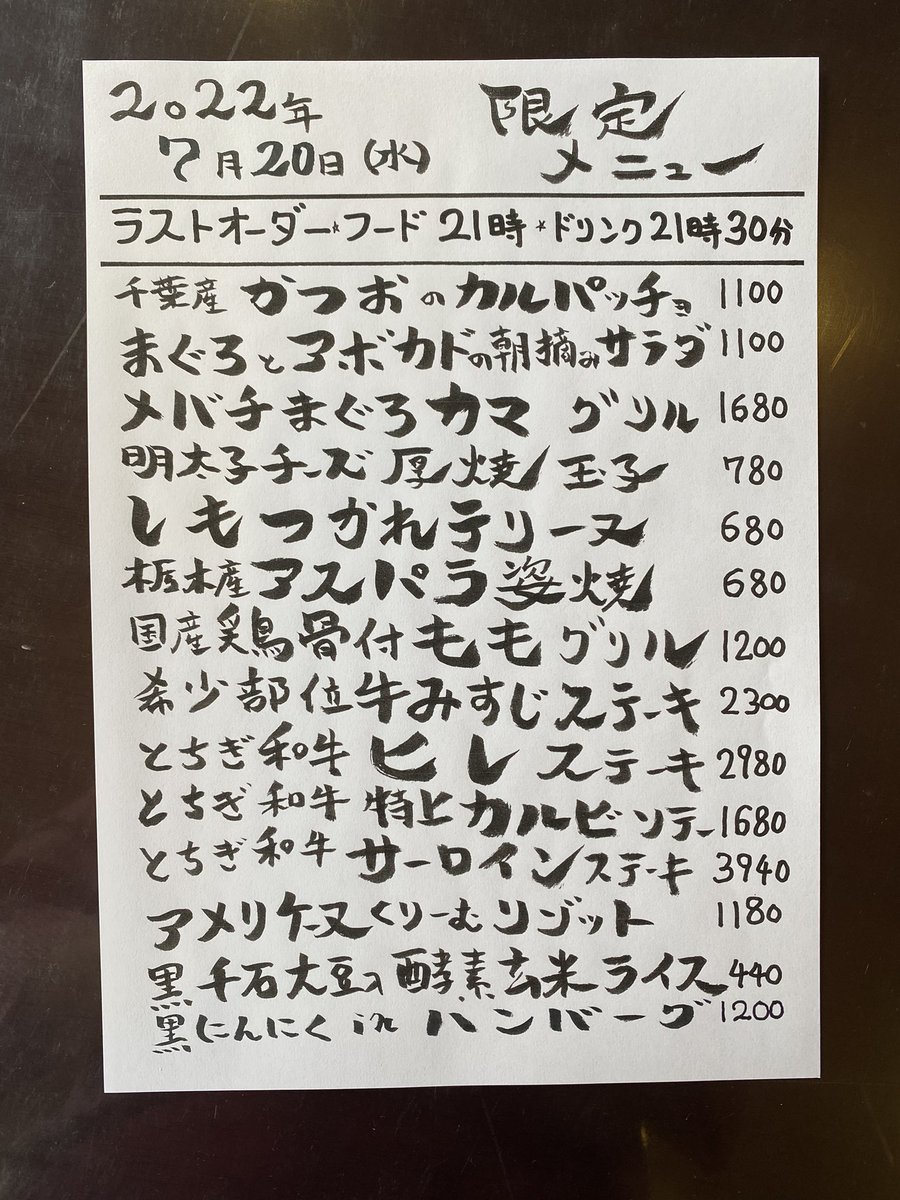 2022年 限定
7月20日(水) メニュー
ラストオーダー*フード 21時 *ドリンク21時30分
千葉産 かつおのカルパッチョ 1100
まぐろとアボカドの朝摘みサラダ 1100
メバチまぐろカマ グリル 1680
明太子チーズ 厚焼 玉子 780
しもつかれテリーヌ 680
栃木産アスパラ姿焼 680
国産鶏骨付ももグリル 1200
希少部位牛みすじステーキ 2300
とちぎ和牛 ヒレステーキ 2980
とちぎ和牛 特上カルビソテー 1680
とちぎ和牛 サーロインステーキ 3940
アメリケーヌくりーむリゾット 1180
黒千石大豆入酵素玄米ライス 440
黒にんにく in ハンバーグ 1200